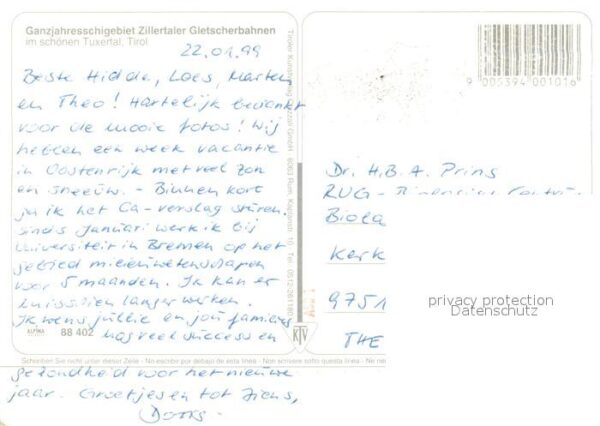 Ganzjahresschigebiet Zillertaler Gletscherbahnen
im schönen Tuxertal, Tirol
22.01.99
Beste Hidda, Loes, Marten
en Theo! Hartelijk bedankt
voor de mooie fotos! Wij
hebben een week vacantie
in Oostenrijk met veel zon
en sneeuw. - Binnen kort
ik het Ca-verslag sturen.
sinds Januari werk ik bij
Universiteit in Bremen op het
gebied milieuwetenschapen
voor 5 maanden. Ik kan er
misschien langer werken.
Ik wens jullie en jou families
nog veel success en
gezondheid voor het nieuwe
jaar. Groetjes en tot ziens,
ALPINA
88 402
KTV
Schreiben Sie nicht unter dieser Zeile - No escribir por debajo de esta linea - Non scrivere sotto questa linea - Ne
9 005394 001016
Dr. H.B.A. Prins
RUG -
Biola
Kerk
9751
THE
privacy protection
Datenschutz